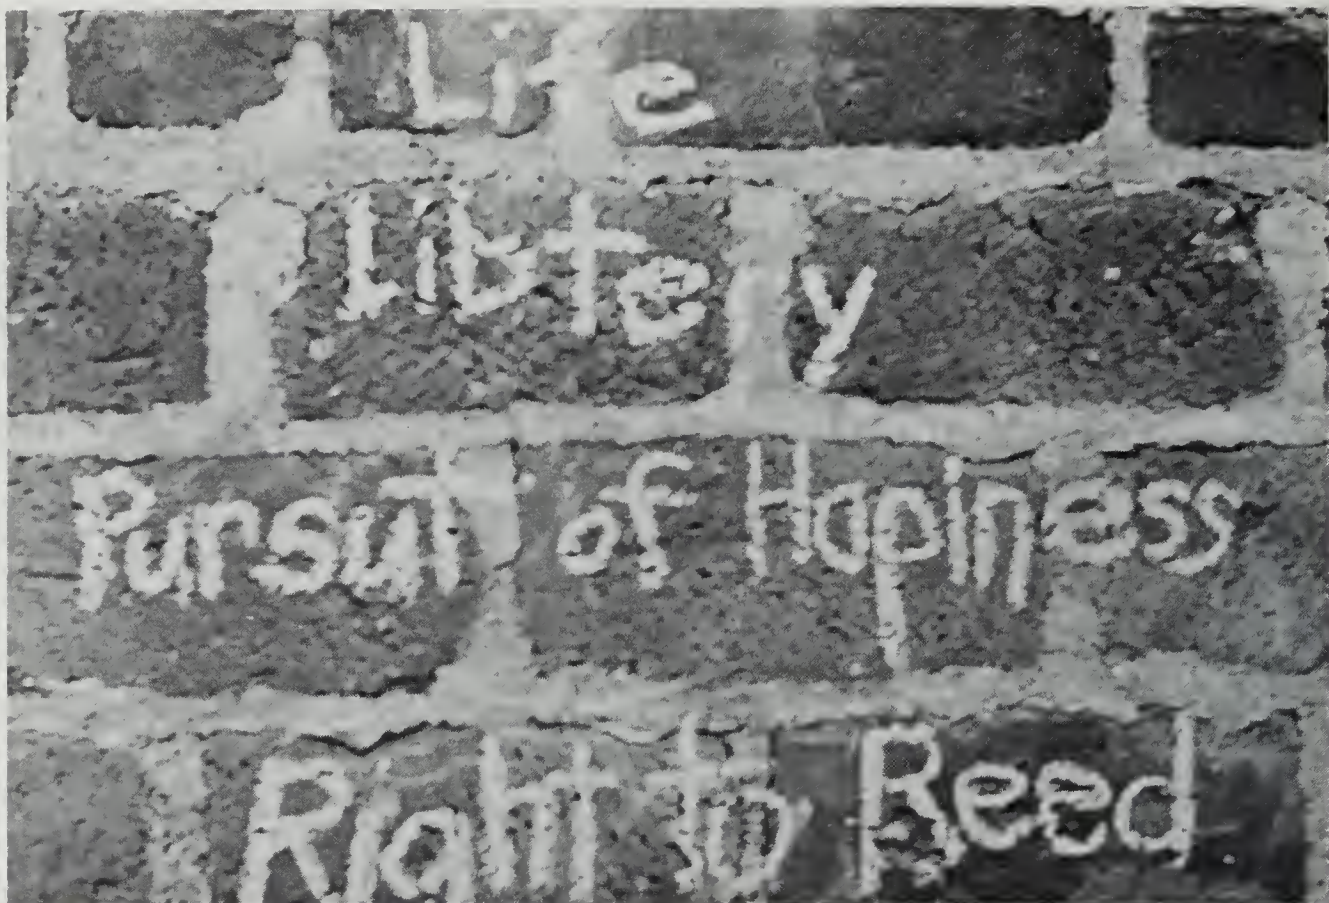 Life
libtery
Pursut of Hapiness
Right to Reed